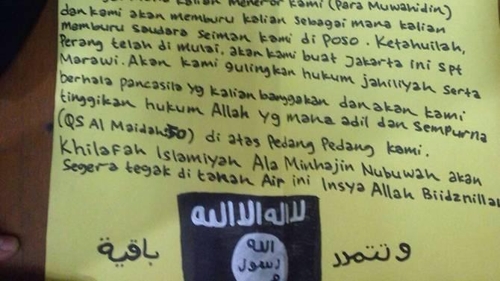 kalian meneror kami (Para Muwahidin)
dan kami akan memburu kalian sebagai mana kalian
memburu saudara seiman kami di Poso. Ketahuilah,
Perang telah di mulai, akan kami buat Jakarta ini spt
Marawi. Akan kami gulingkan hukum jahiliyah serta
berhala pancasila yg kalian banggakan dan akan kami
tinggikan hukum Allah yg mana adil dan sempurna
(QS Al Maidah 50) di atas Pedang Pedang kami.
Khilafah Islamiyah Ala Minhajin Nubuwah akan
Segera tegak di tanah Air ini Insya Allah Biidznillah
لا اله الا الله
الله
رسول
باقية
وتتمدد